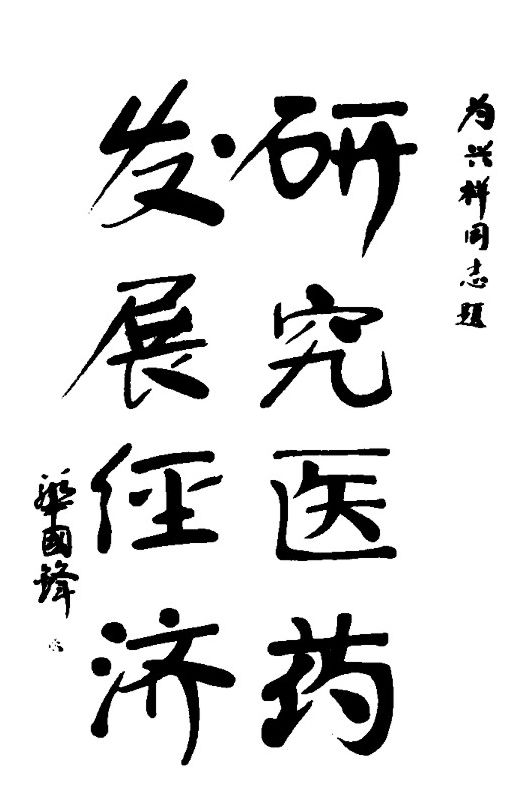 为兴祥同志题
研究医药
发展经济
華國鋒